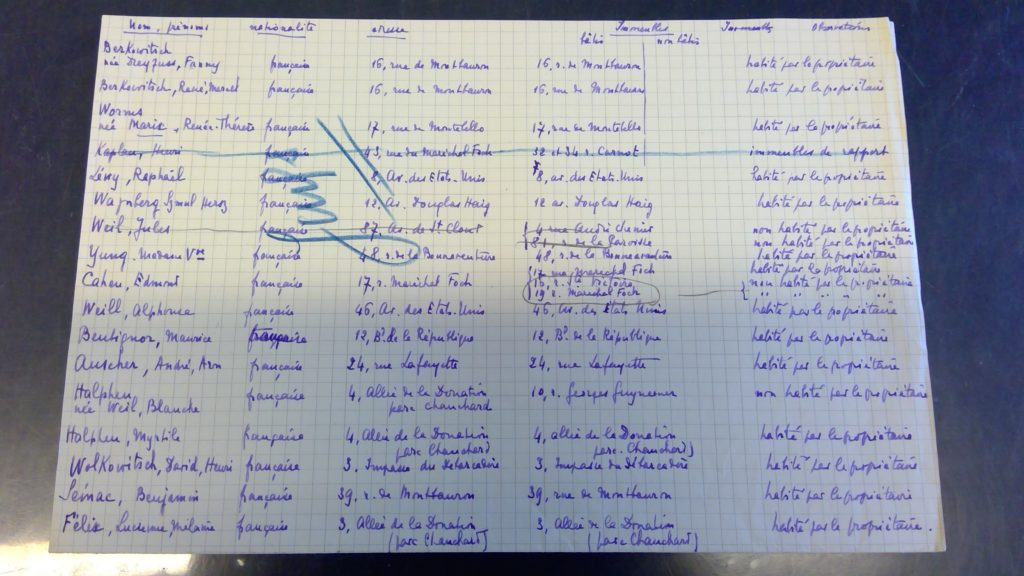 Nom, prénoms nationalité adresse Immeubles Immeubles Observations
bâtis non bâtis
Berkowitsch
née Dreyfuss, Fanny française 16, rue de Montbauron 16, r. de Montbauron habité par le propriétaire
Berkowitsch, René, française 16, rue de Montbauron 16, r. de Montbauron habité par le propriétaire
Worms
née Marix, Renée-Thérèse française 17, rue de Montebello 17, rue de Montebello habité par le propriétaire
Kaplan, Henri française 43, rue du Maréchal Foch 32 et 34 r. Carnot immeubles de rapport
Lévy, Raphaël française 8, Av. des Etats-Unis 8, av. des Etats-Unis habité par le propriétaire
Wajnberg française 12, av. Douglas Haig 12 av. Douglas Haig habité par le propriétaire
Weil, Jules française 87, Av. de St Cloud 4 rue André Chénier non habité par le propriétaire
r. de la non habité par le propriétaire
Yung. Madame Vve française 48, r. de la Bonneaventure 48, r. de la Bonneaventure habité par le propriétaire
17 rue Maréchal Foch habité par le propriétaire
Cahen, Edmond française 17, r. Maréchal Foch r. non habité par le propriétaire
19 r. Maréchal Foch " " " "
Weill, Alphonse française 46, Av. des Etats-Unis 46, Av. des Etats Unis habité par le propriétaire
Maurice française 12, Bd. de la République 12, Bd. de la République habité par le propriétaire
Auscher, André, Aron française 24, rue Lafayette 24, rue Lafayette habité par le propriétaire
Halphen française 4, Allée de la Donation 10, r. Georges Guynemer non habité par le propriétaire
née Weil, Blanche parc chauchard
Halphen, Myrtile française 4, Allée de la Donation 4, allée de la Donation habité par le propriétaire
parc Chauchard) parc. Chauchard)
Wolkowitsch, David, Henri française 3, Impasse du Débarcadère 3, Impasse du Débarcadère habité par le propriétaire
Benjamin française 39, r. de Montbauron 39, rue de Montbauron habité par le propriétaire
Félix, Lucienne Mélanie française 3, Allée de la Donation 3, allée de la Donation habité par le propriétaire.
(parc Chauchard) (parc Chauchard)